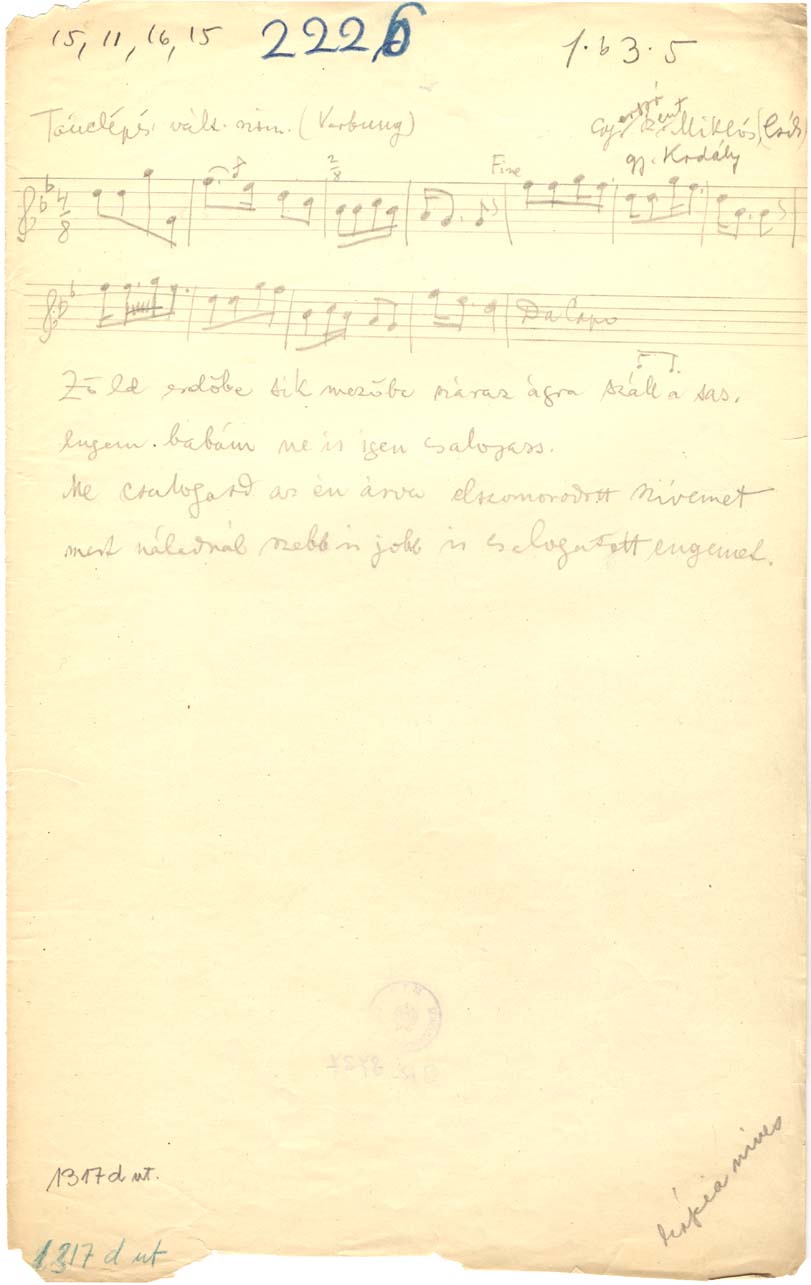 15, 11, 16, 15
2226
1·b3·5
Tánclépés vált. ritm. (Verbung)
Miklós (Csík)
gj. Kodály
4/8
2/8
Fine
Da Capo
Zöld erdőbe sik mezőbe száraz ágra száll a sas.
engem babám ne is igen csalogass.
Ne csalogasd az én árva elszomorodott szívemet
mert náladnál szebb is jobb is csalogatott engemet.
1317 d ut.
1317 d ut